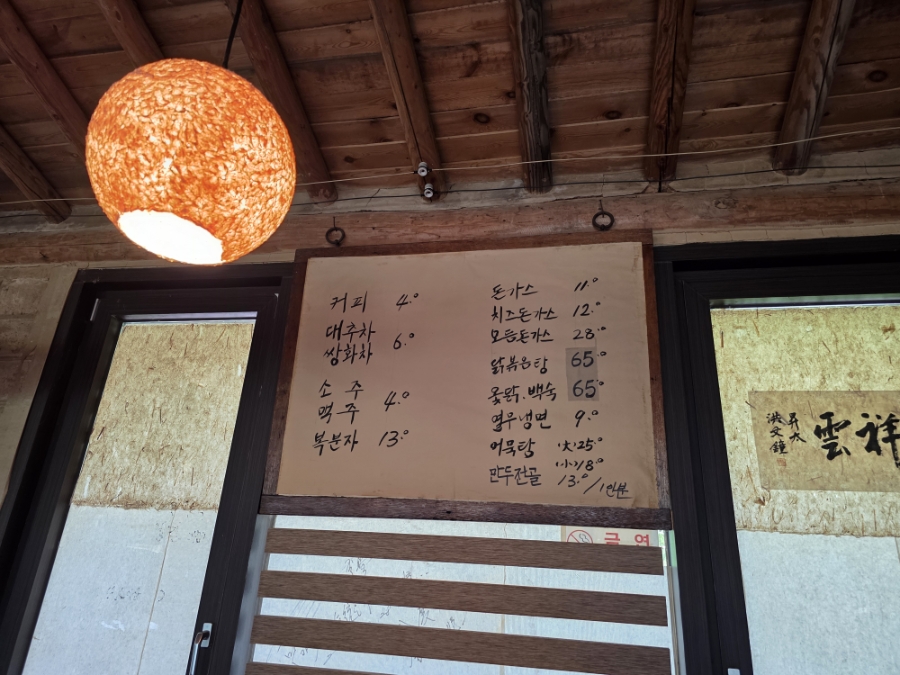 커피 4.⁰
대추차
쌍화차 6.⁰
소주
맥주 4.⁰
복분자 13.⁰
돈가스 11.⁰
치즈돈가스 12.⁰
모듬돈가스 28.⁰
닭볶음탕 65.⁰
옻닭.백숙 65.⁰
열무냉면 9.⁰
어묵탕 (大)25.⁰
(小)18.⁰
만두전골 13.⁰/1인분
금연
祥雲
昇太
洪文鐘